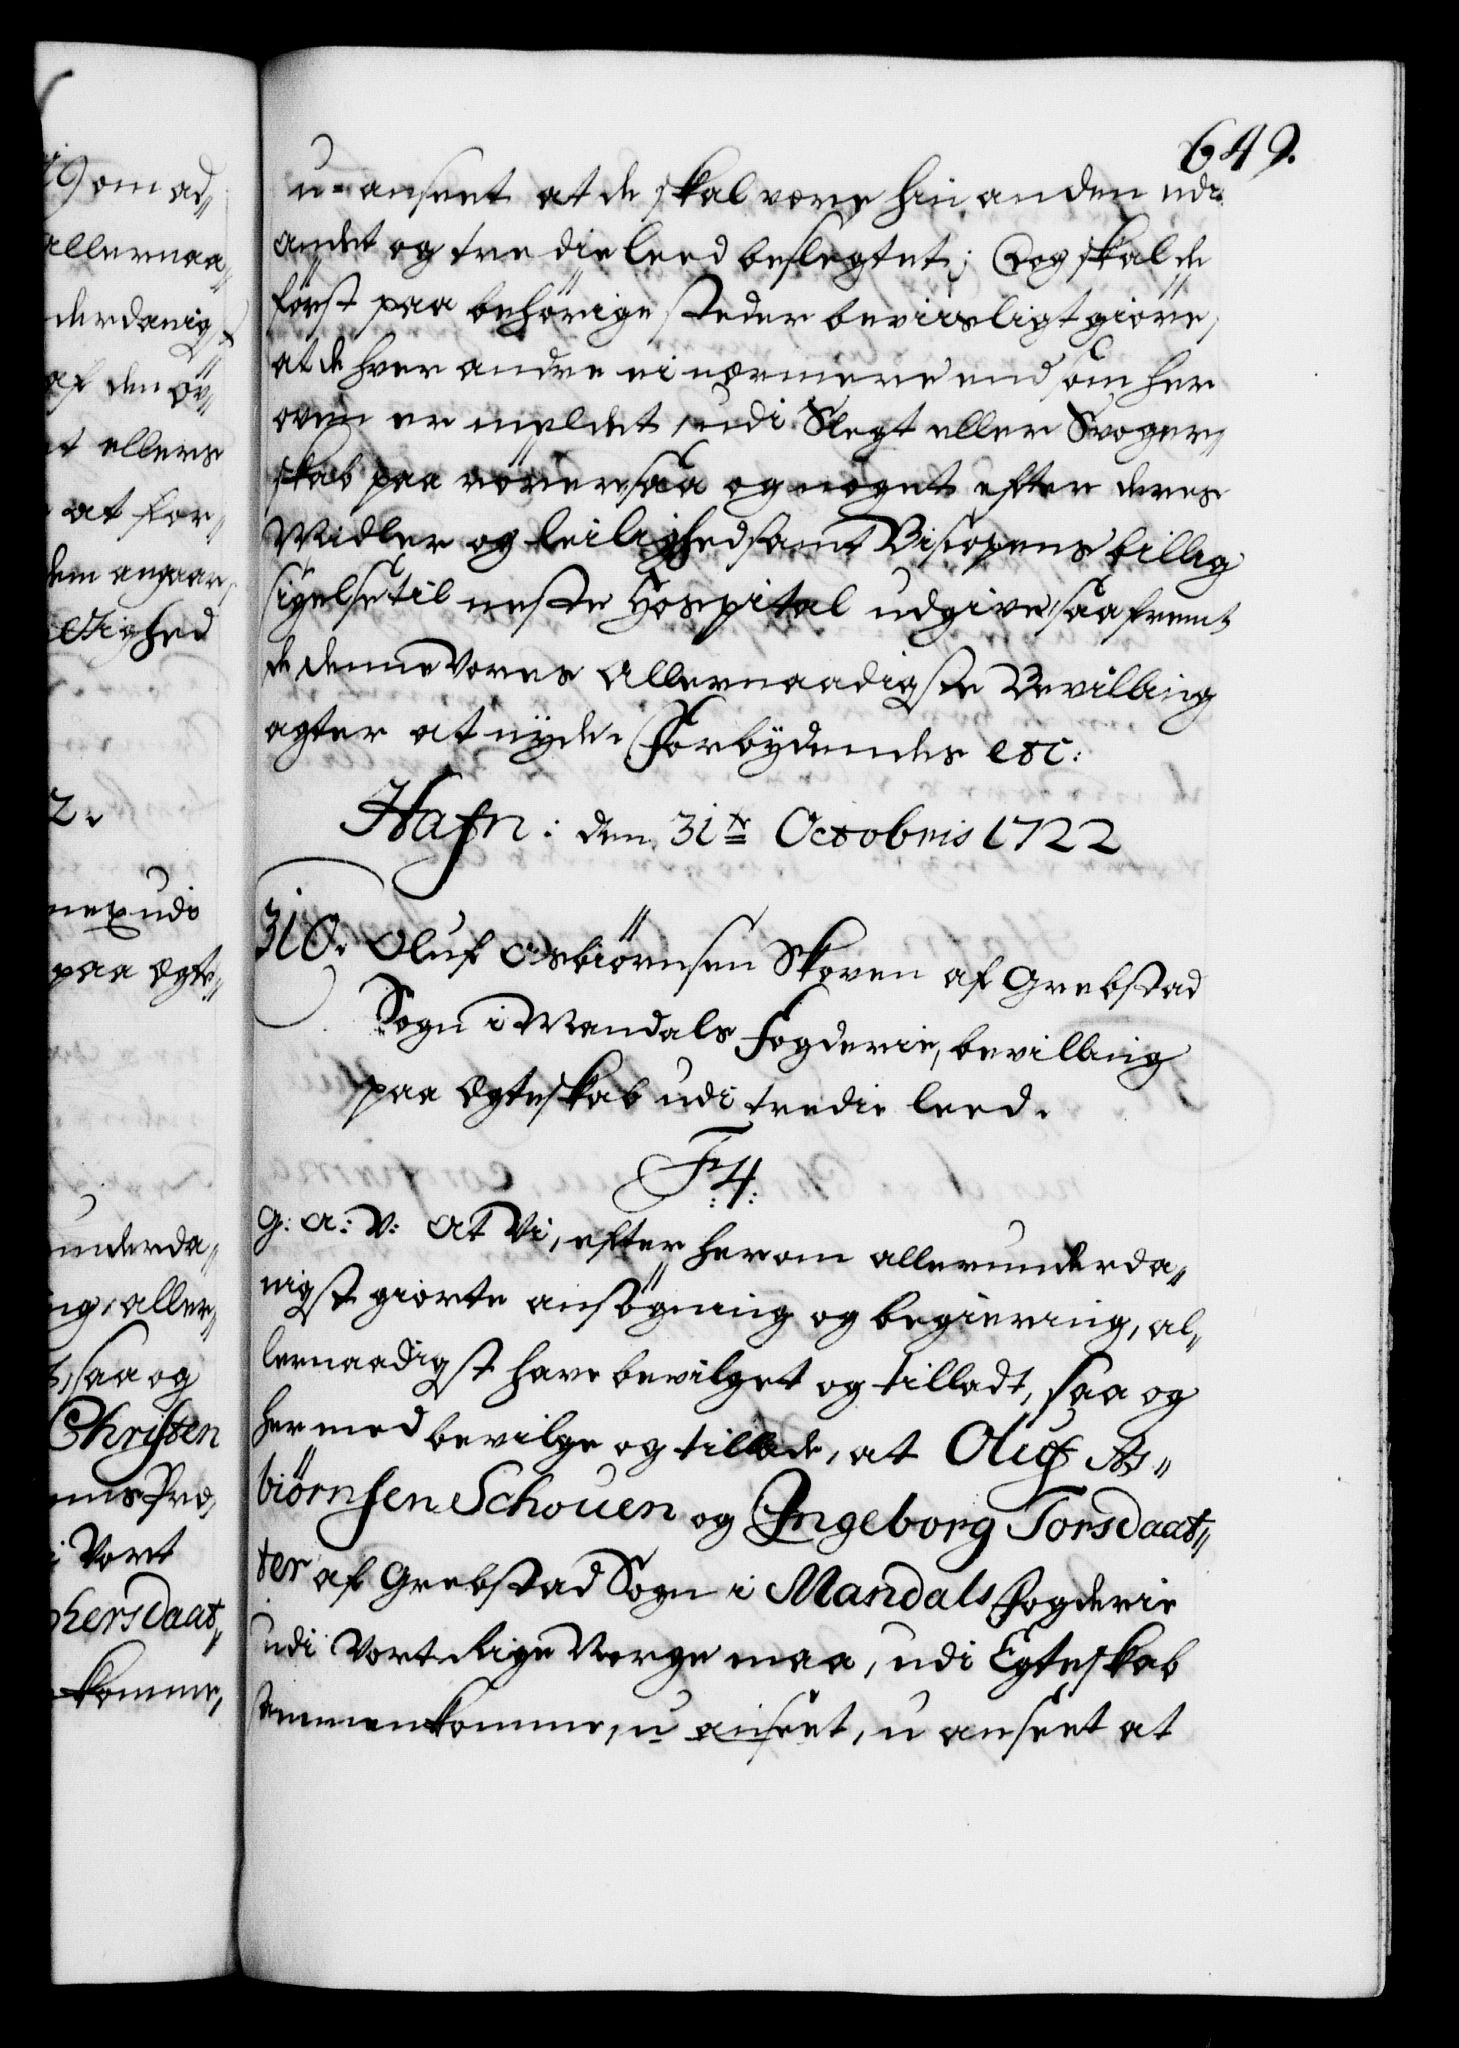 649.
u-anseet at de skal være hin anden udi
andet og tredie leed beslegtet; Dog skal de
först paa behörige steder bevisligt giöre,
at de hver andre ei nærmere end som her
oven er meldet, udi Slegt eller Svoger„
skab paa rörer, saa og noget efter deres
Midler og leilighed samt Biscopens billig
sigelse til neste Hospital udgive, saafremt
de denne Vores Allernaadigste Bevilling
agter at nÿde. Forbÿdendes etc:
Hafn: den 31te Octobris 1722
310. Oluf Asbiörnsen Skoven af Grebstad
Sogn i Mandals Fogderie, bevilling
paa Ægteskab udi tredie leed.
F:4:
G: A: V: At Vi, efter herom allerunderda„
nigst giorte ansögning og begiering, al„
lernaadigst have bevilget og tilladt, saa og
hermed bevilge og tillade, at Oluf As„
biörnsen Schouen og Ingeborg Torsdaat„
ter af Grebstad Sogn i Mandals Fogderie
udi Vort Rige Norge maa, udi Egteskab
sammenkomme, u anseet, u anseet at
om ad„
allernaa„
derdanigst
af den öv„
at ellers
at for„
dem angaar,
ctighed
2.
nex udi
paa Ægte„
underda„
ng, aller„
saa og
Christen
Vort
hersdaat„
komme,